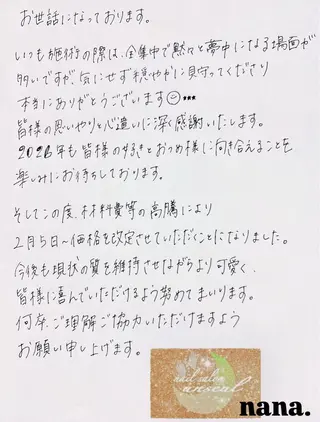 お世話になっております。
いつも施術の際は、全集中で黙々と夢中になる場面が
多いですが、気にせず穏やかに見守ってくださり
本当にありがとうございます
皆様の思いやりと心遣いに深く感謝いたします。
2026年も皆様のすてきとおつめ様に向き合えることを
楽しみにお待ちしております。
そしてこの度、材料費等の高騰により
2月5日〜価格を改定させていただくことになりました。
今後も現状の質を維持させながらより可愛く、
皆様に喜んでいただけるよう努めてまいります。
何卒、ご理解ご協力いただけますよう
お願い申し上げます。
nail salon
unseul
nana.